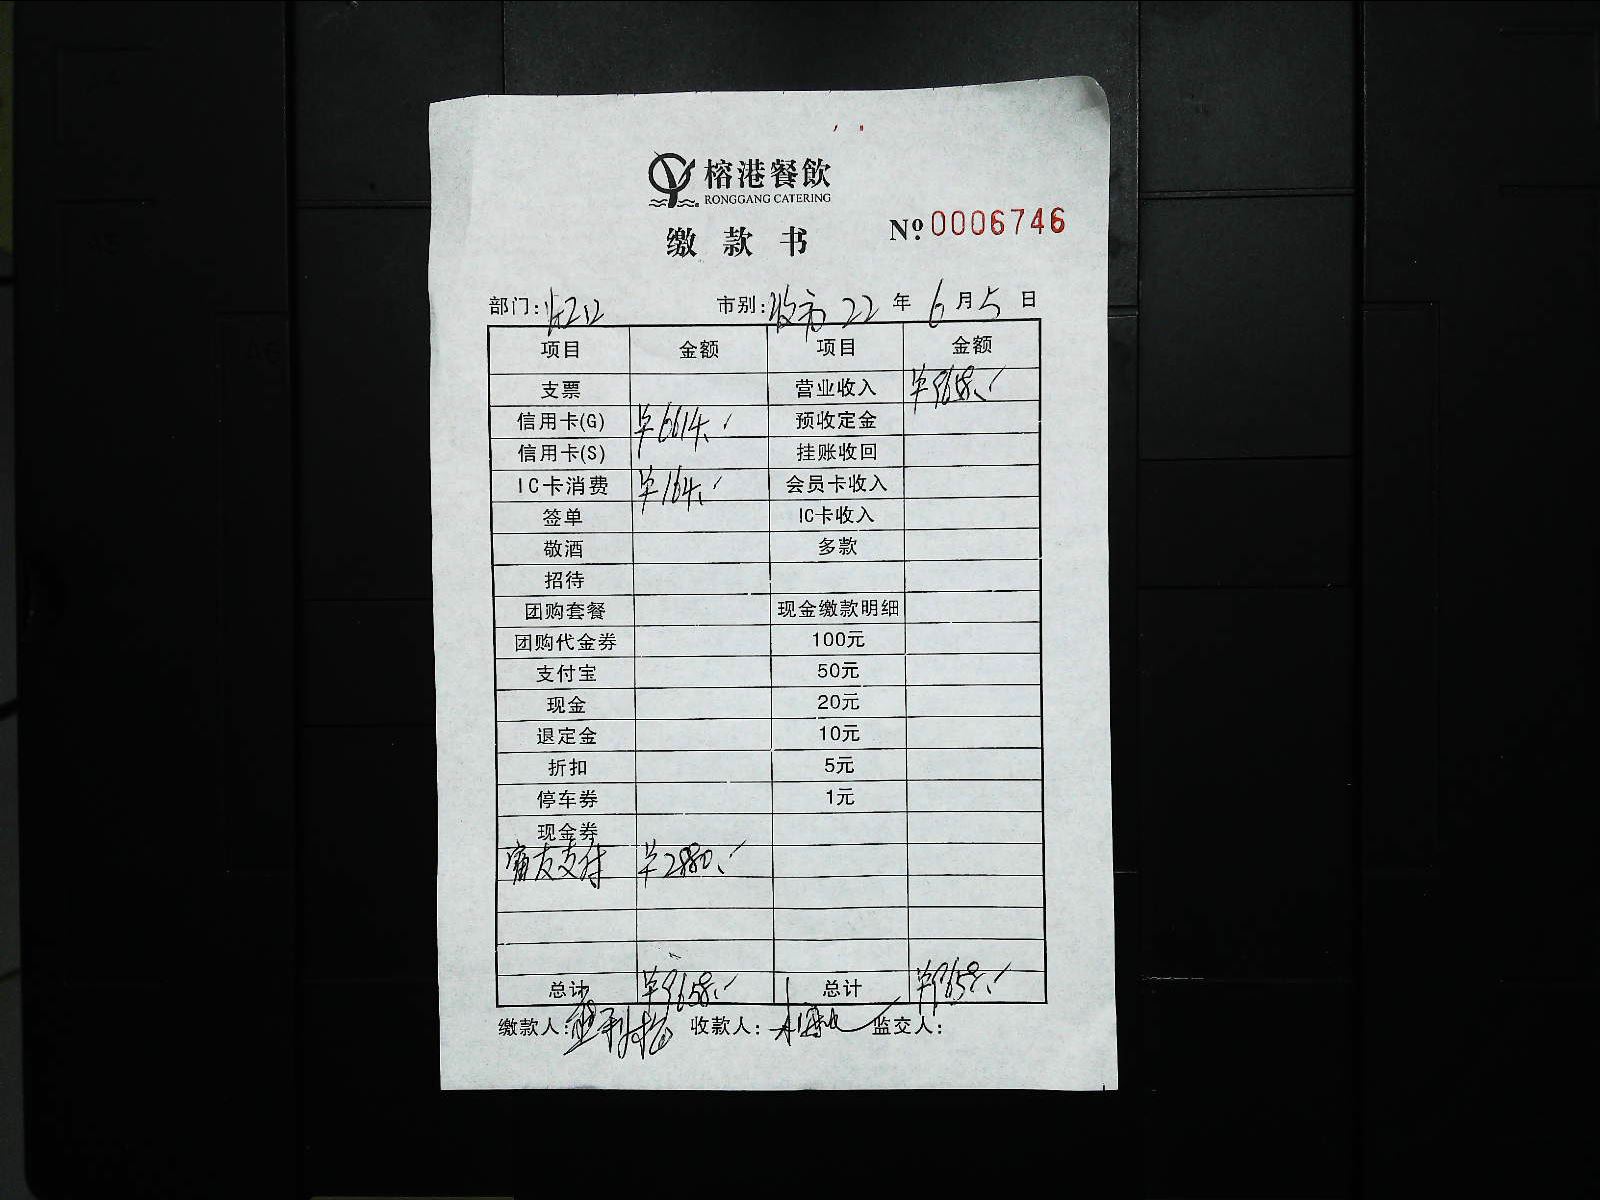 榕港餐飲
RONGGANG CATERING
缴款书 Nº 0006746
部门: 市别:收市 22年6月5日
项目 金额 项目 金额
支票 营业收入 ¥9658.
信用卡(G) ¥6614. 预收定金
信用卡(S) 挂账收回
IC卡消费 ¥164. 会员卡收入
签单 IC卡收入
敬酒 多款
招待
团购套餐 现金缴款明细
团购代金券 100元
支付宝 50元
现金 20元
退定金 10元
折扣 5元
停车券 1元
现金券
友支付 ¥2880.
总计 ¥9658. 总计 ¥9658.
缴款人: 收款人: 监交人: